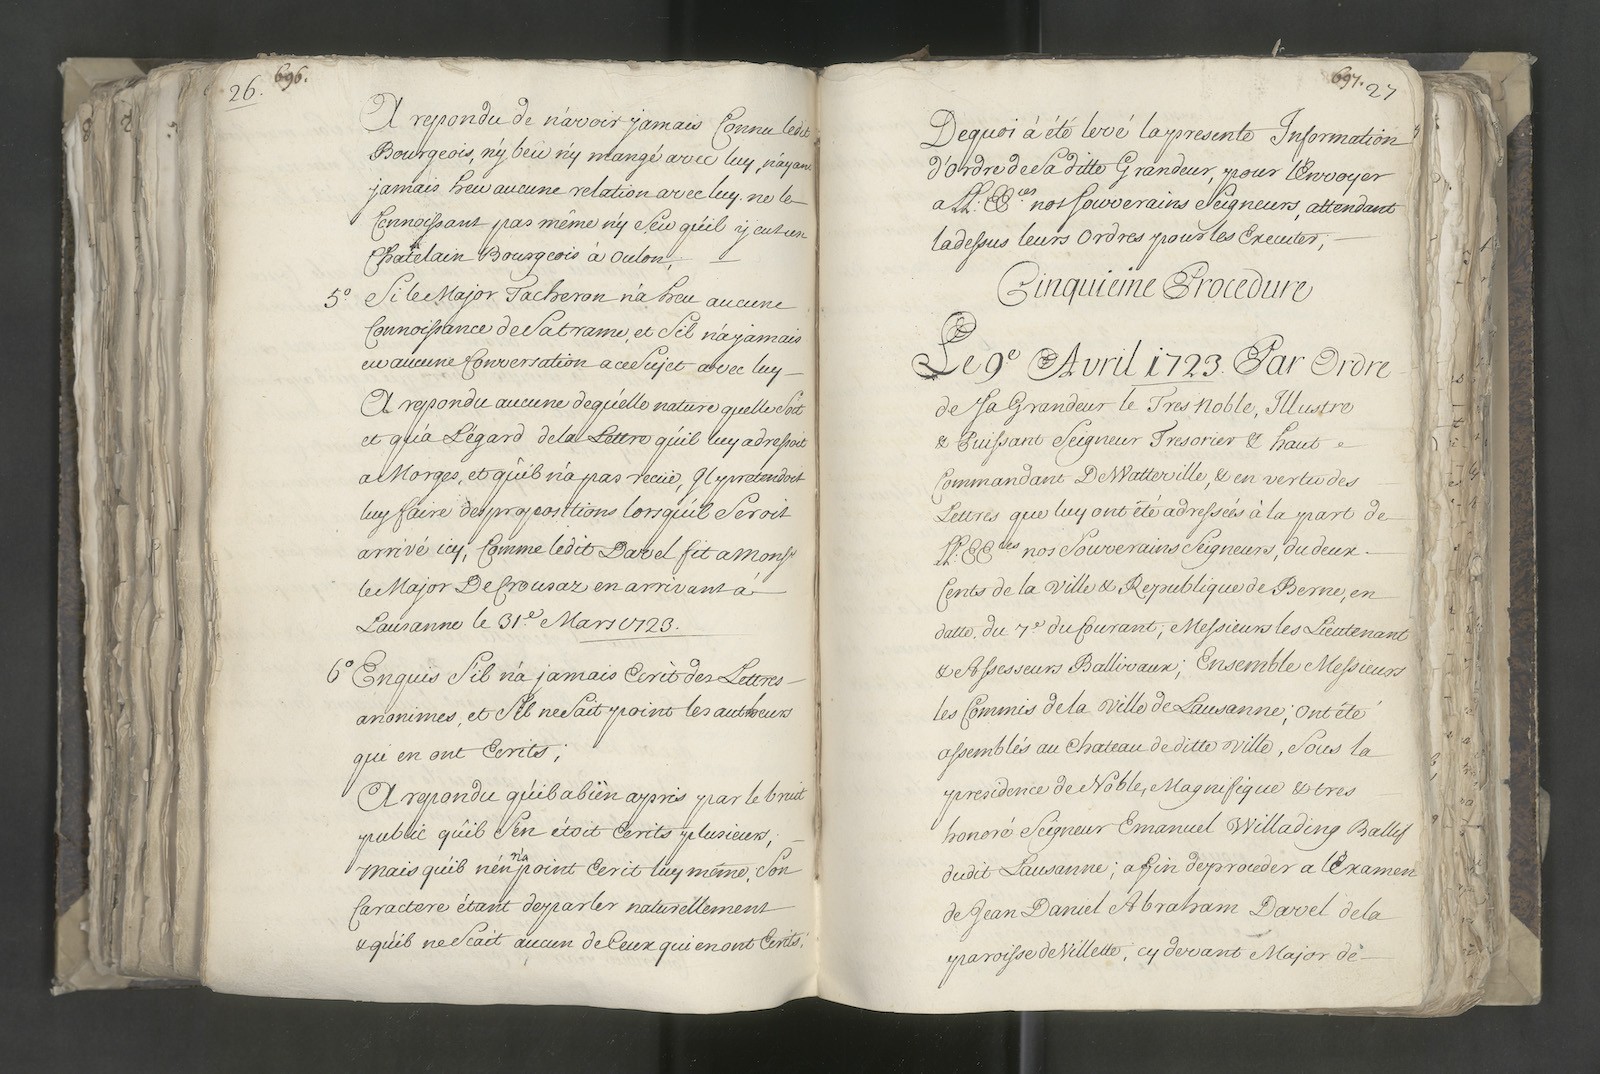 26. 696.
A repondu de n'avoir jamais Connu ledit
Bourgeois, n'y beu n'y mangé avec luy, n'ayant
jamais heu aucune relation avec luy. ne le
Connoissant pas même n'y sçeu qu'il y eut un
Chatelain Bourgeois à Oulon;
5.º Si le Major Tacheron n'a heu aucune
Connoissance de Sa trame, et S'il n'a jamais
eu aucune Conversation a ce Sujet avec luy
A repondu aucune de quelle nature quelle Soit
et qu'a L'égard de la Lettre qu'il luy adressoit
a Morges, et qu'il n'a pas recüe, Il y pretendoit
luy faire des propositions lorsqu'il Seroit
arrivé icy, Comme ledit Davel fit a Monsr
le Major DeCrousaz en arrivant à
Lausanne le 31.e Mars 1723.
6º Enquis S'il n'a jamais Ecrit des Lettres
anonimes, et S'il ne Sait point les autheurs
qui en ont Ecrits;
A repondu qu'il a bïen appris par le bruit
public qu'il S'en étoit Ecrits plusieurs;
Mais qu'il n'en n'a point Ecrit luy même, Son
Caractere étant de parler naturellement
& qu'il ne Scait aucun de Ceux qui en ont Ecrits;
697. 27
Dequoi à été levé la presente Information
d'Ordre de Sa ditte Grandeur, pour l'Envoyer
a LL. EE.ces nos Souverains Seigneurs, attendant
ladessus leurs Ordres pour les Executer;
Cinquieme Procedure
Le 9e Avril 1723. Par Ordre
de Sa Grandeur le Tres Noble, Illustre
& Puissant Seigneur Tresorier & haut
Commandant DeWatteville, & en vertu des
Lettres que luy ont été adressées à la part de
LL. EE.ces nos Souverains Seigneurs, du deux
Cents de la Ville & Republique de Berne, en
datte du 7e du Courant, Messieurs les Lieutenant
& Assesseurs Ballivaux; Ensemble Messieurs
les Commis de la Ville de Lausanne; Ont été
assemblés au Chateau de ditte Ville, Sous la
presidence de Noble, Magnifique & tres
honoré Seigneur Emanuel Willading Ballif
dudit Lausanne; affin de proceder a l'Examen
de Jean Daniel Abraham Davel de la
paroisse de Villette, cy devant Major de